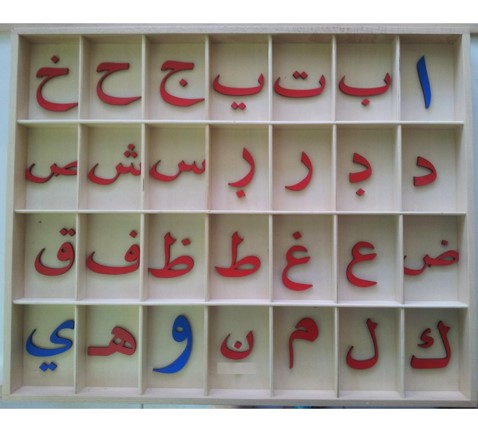 ا ب ت پ ج ح خ
د ڊ ر ڔ س ش ص
ض ع غ ط ظ ف ق
ك ل م ن و هـ ي